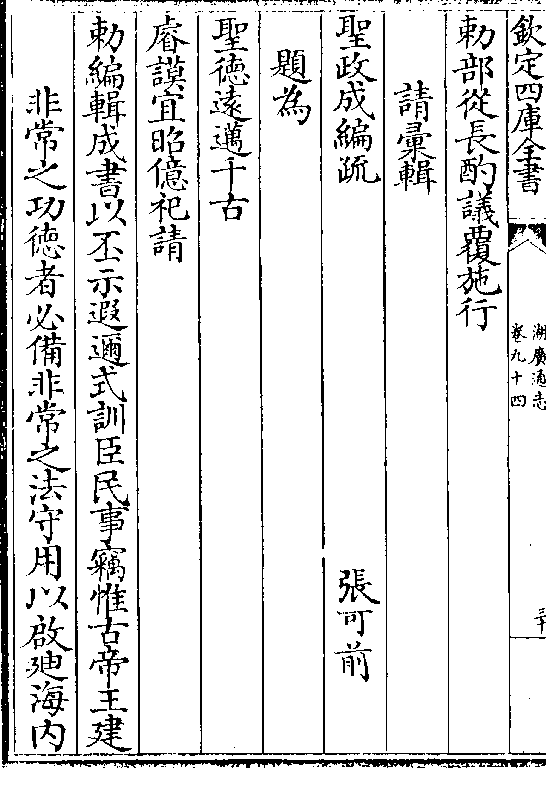 欽定四庫全書
湖廣通志
卷九十四
三十
勅部從長酌議覆施行
請彙輯
聖政成編疏 張可前
題為
聖德遠邁千古
睿謨宜昭億祀請
勅編輯成書以丕示遐邇式訓臣民事竊惟古帝王建
非常之功德者必備非常之法守用以啟廸海内